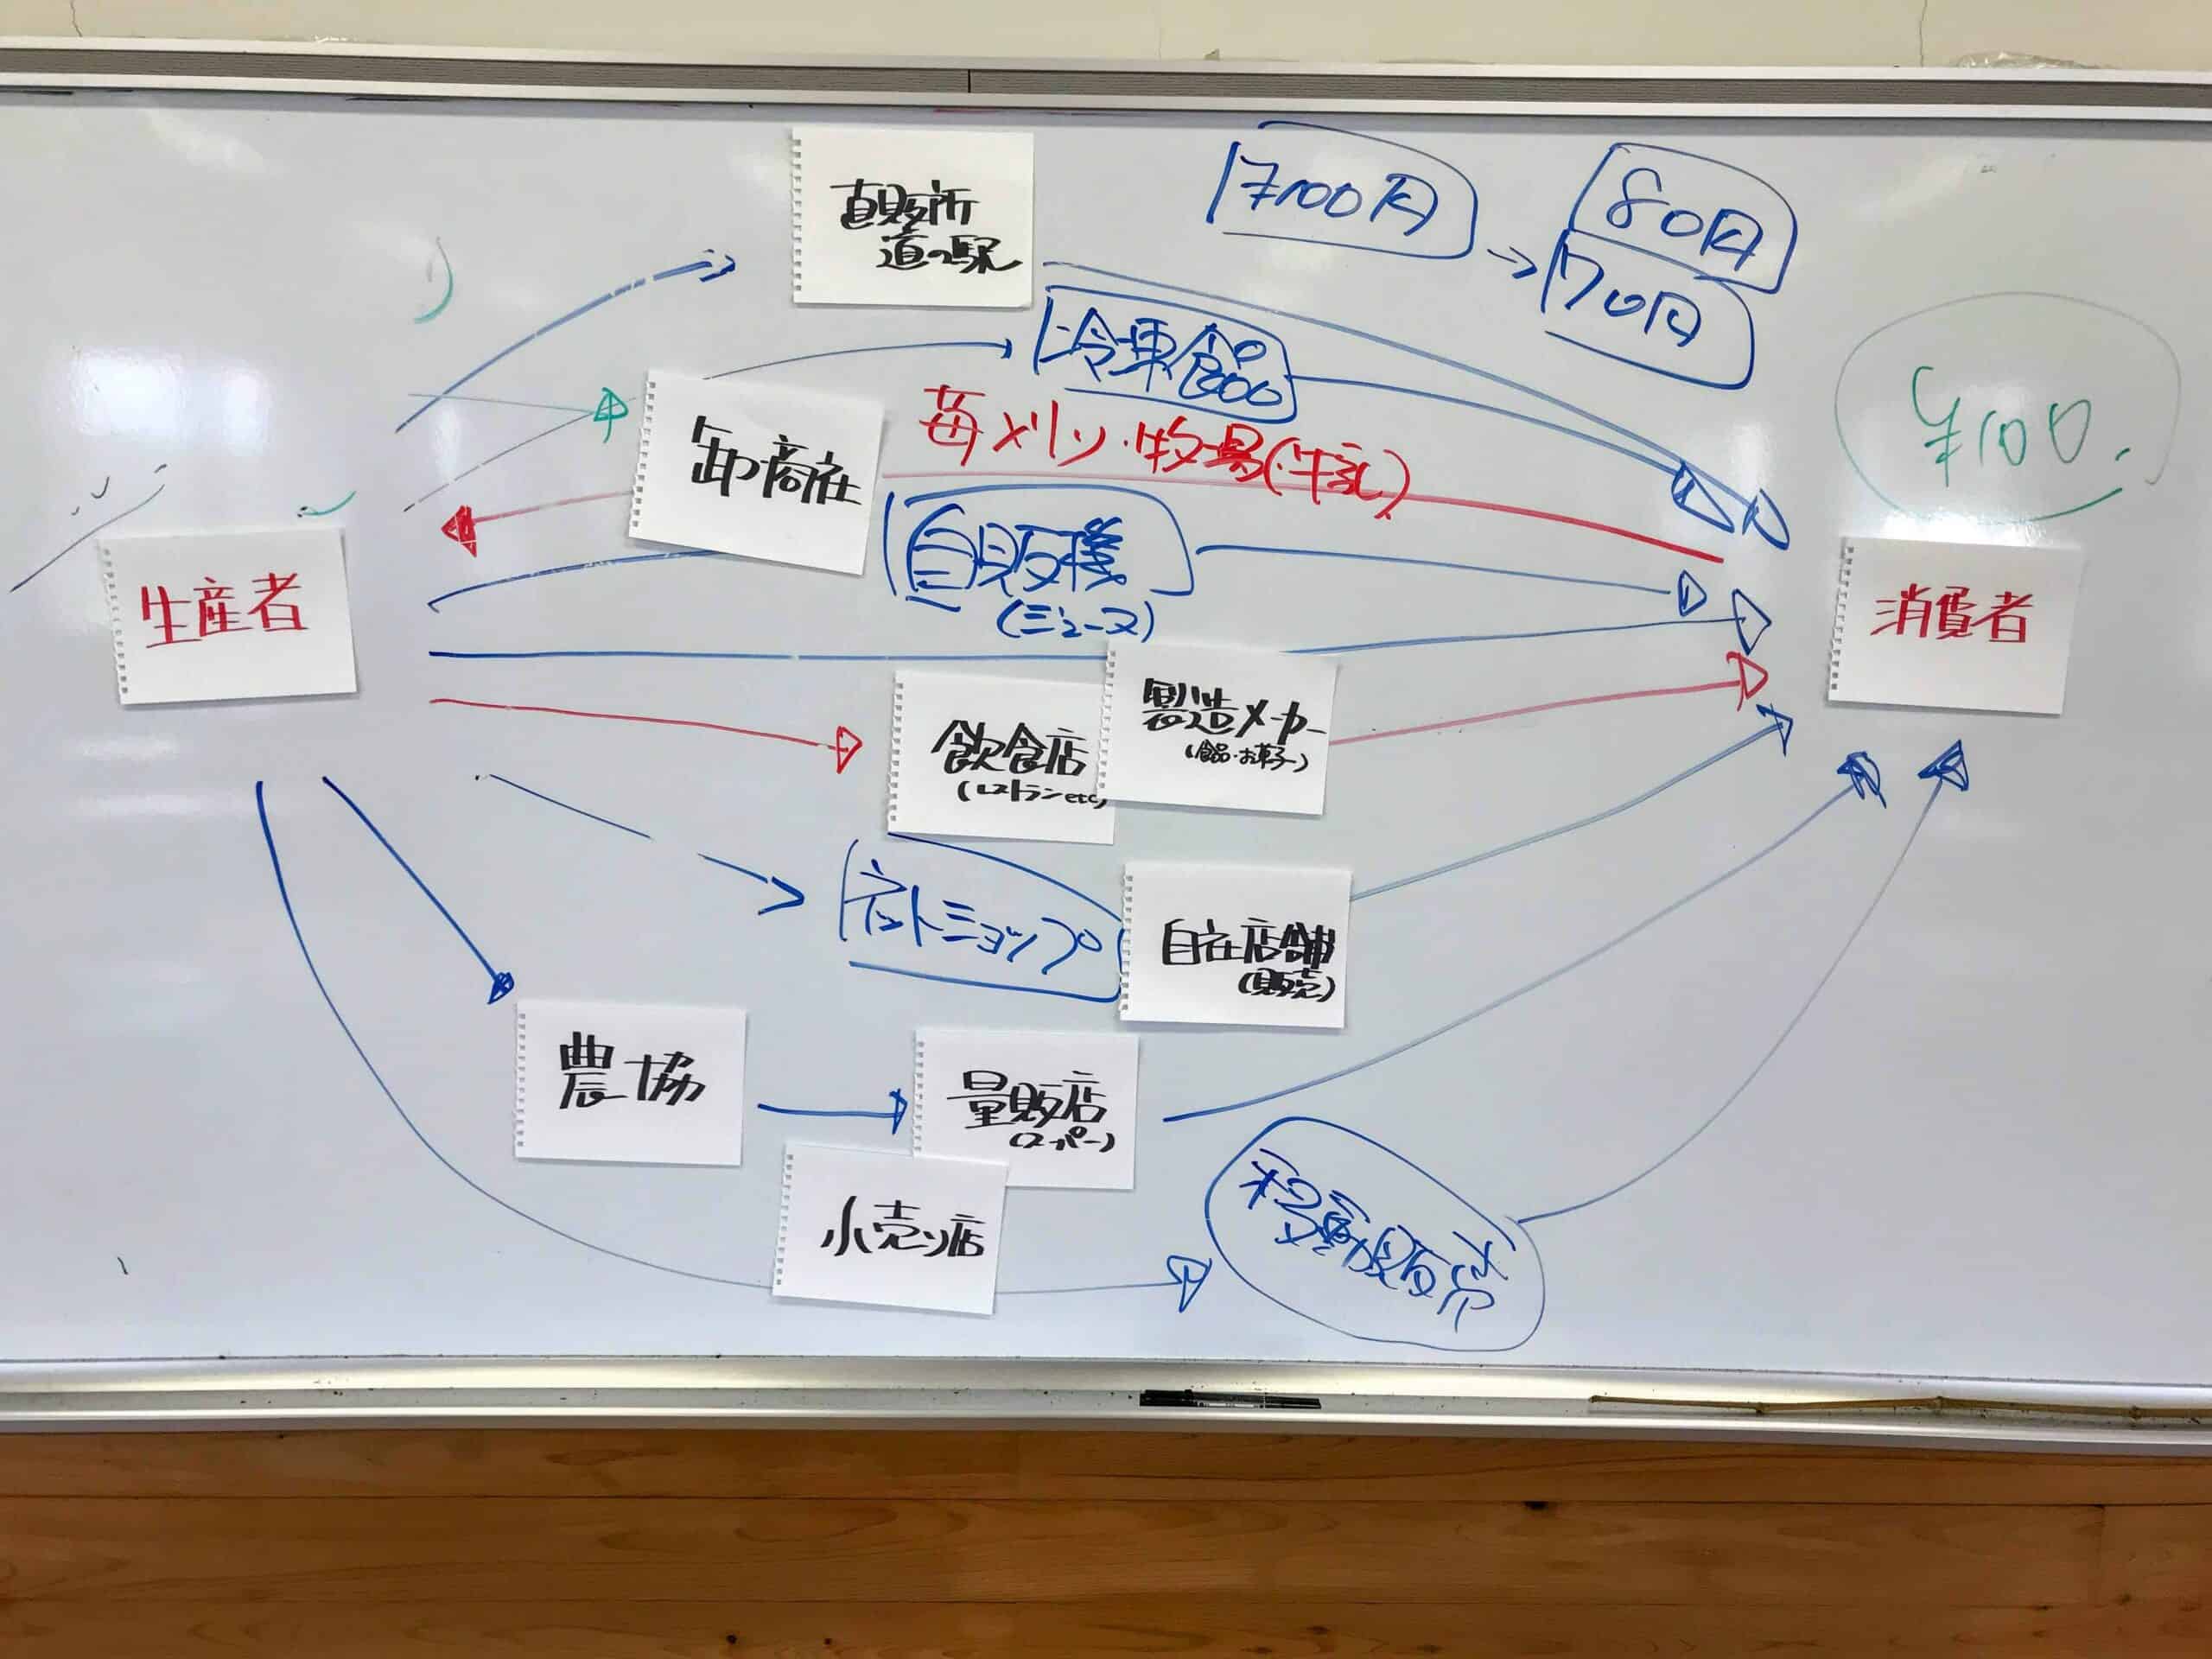 直販所
道の駅
100円
80円
70円
冷凍食品
¥100.
卸・商社
苺メリン・牧場(牛乳)
自販機
(ジュース)
生産者
消費者
製造メーカー
(食品・お菓子)
飲食店
(レストランetc)
ネットショップ
自在店舗
(販売)
農協
量販店
(スーパー)
小売り店
移動販売